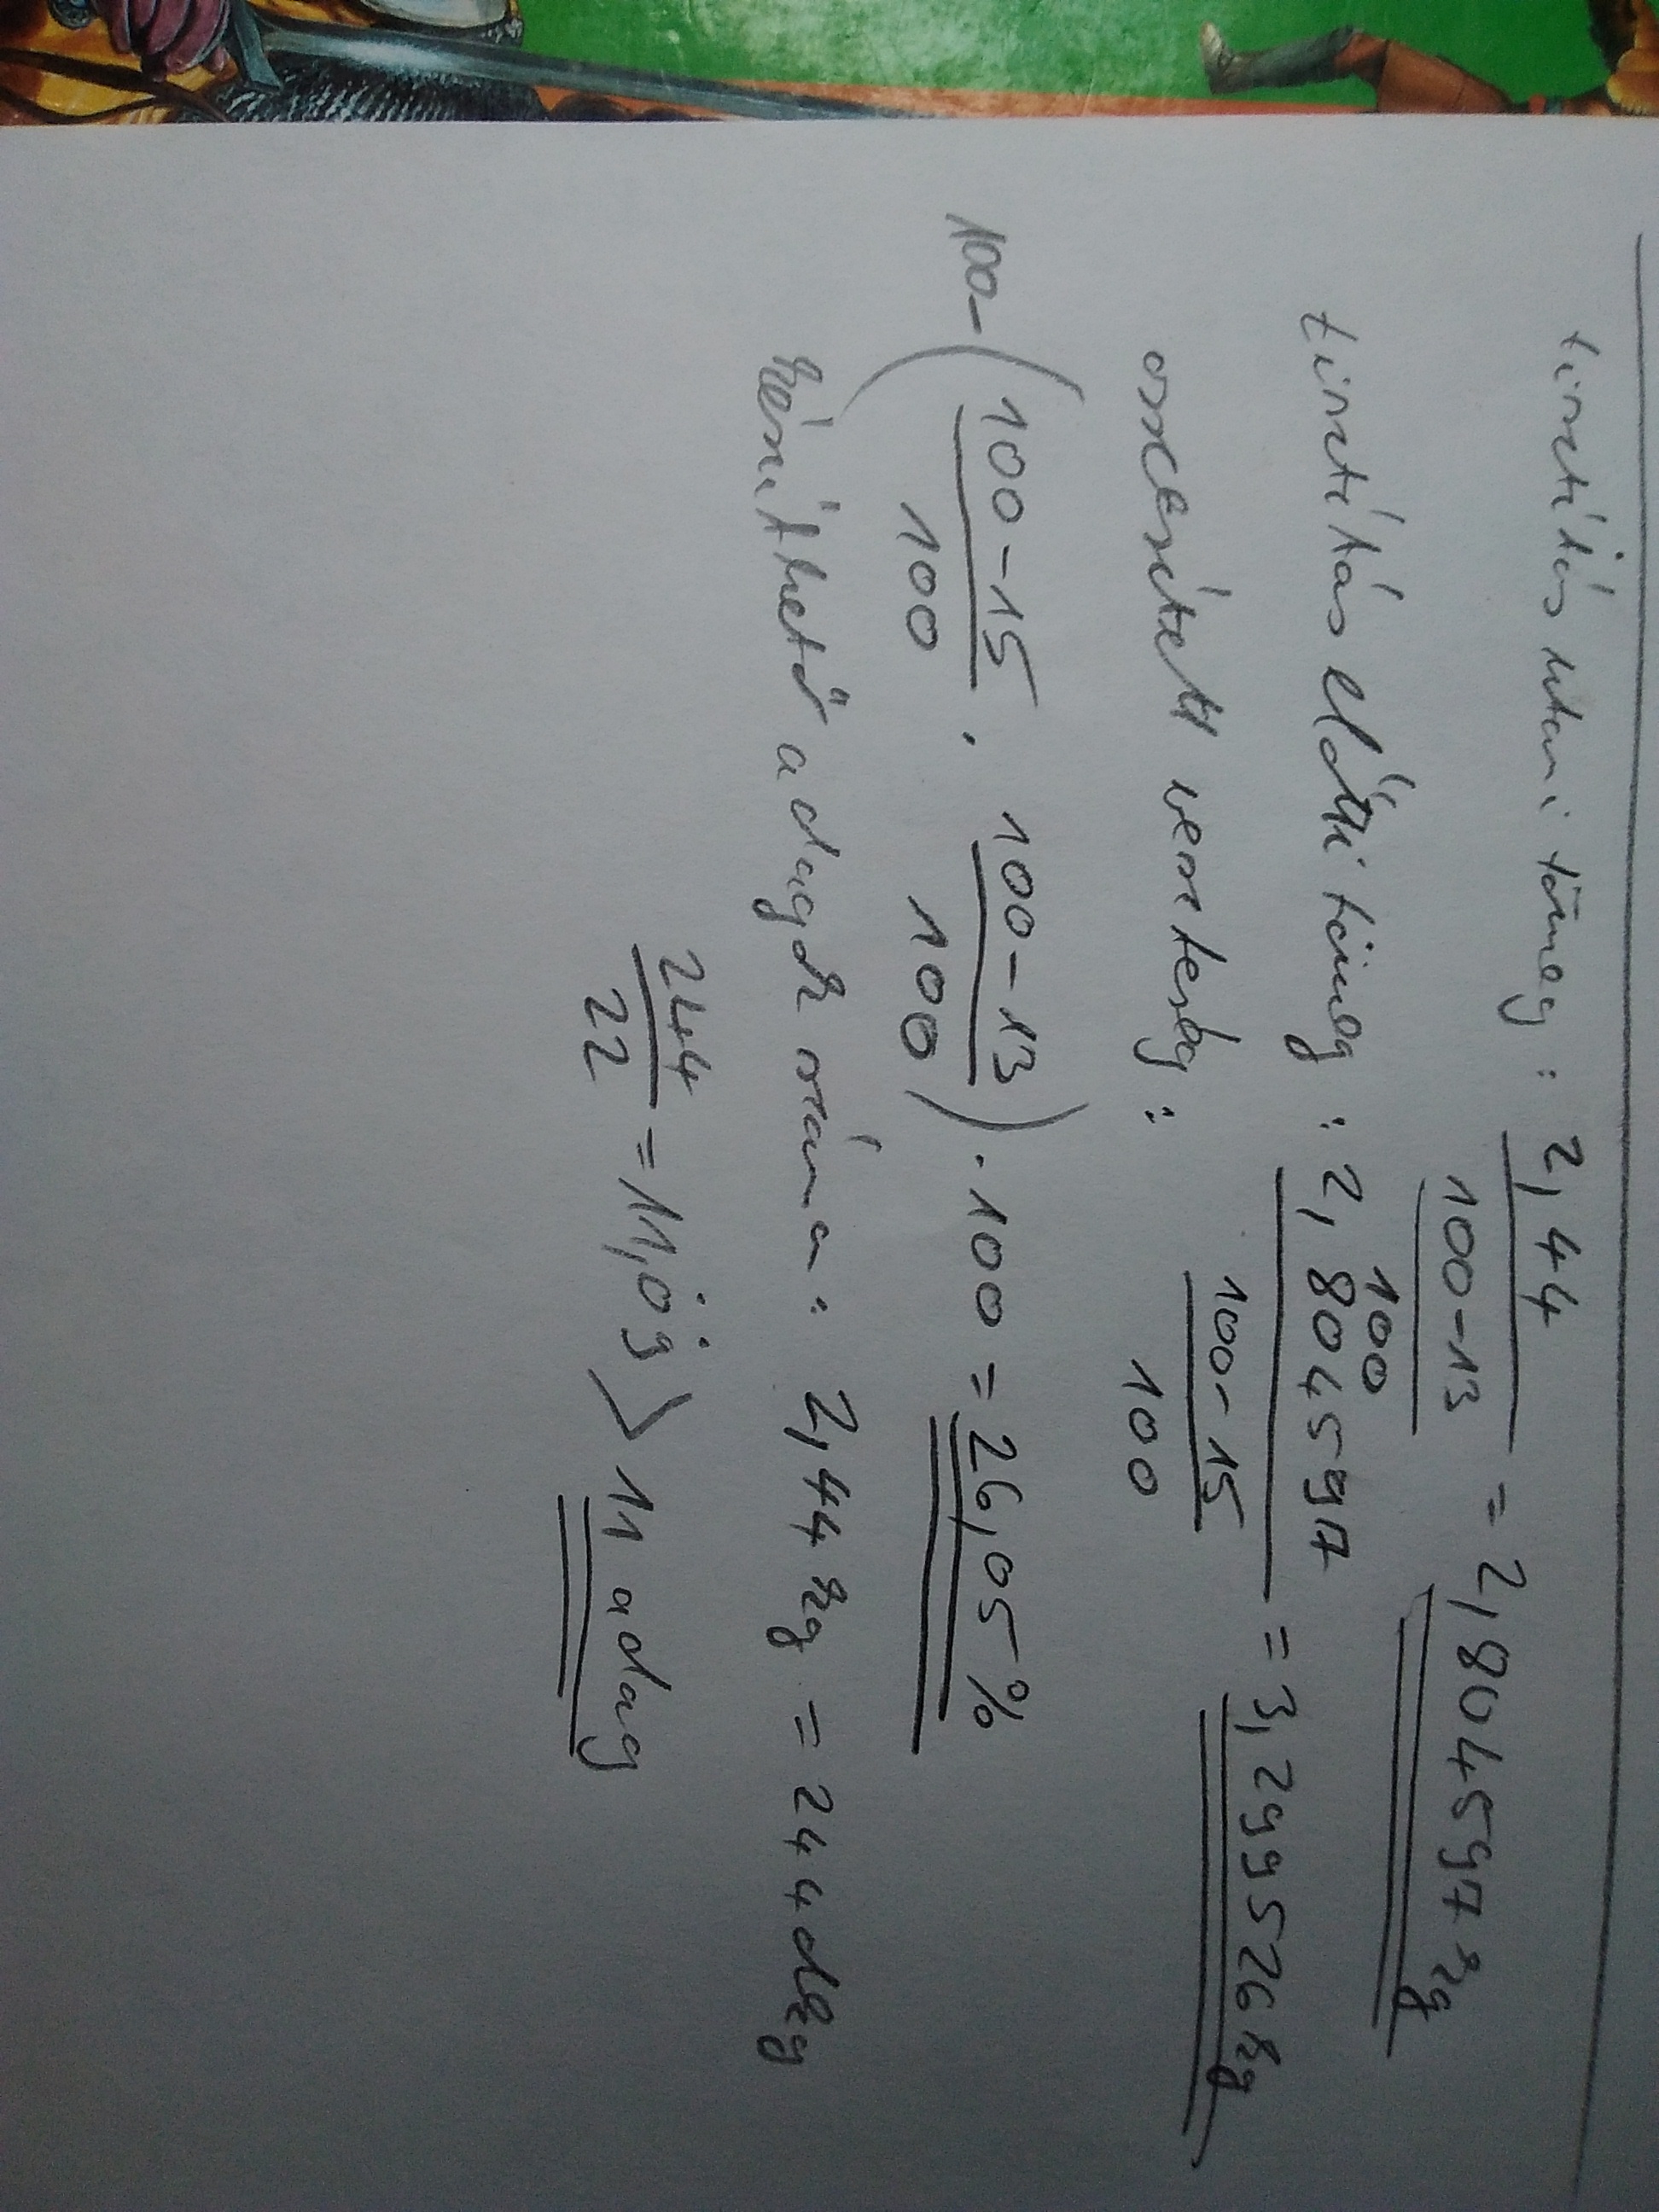 tisztítás utáni tömeg : 2,44 / (100-13 / 100) = 2,804597 kg
tisztítás előtti tömeg : 2,804597 / (100-15 / 100) = 3,299526 kg
összesített veszteség :
100- ( 100-15 / 100 · 100-13 / 100 ) · 100 = 26,05 %
készíthető adagok száma : 2,44 kg = 244 dkg
244 / 22 = 11,09 > 11 adag